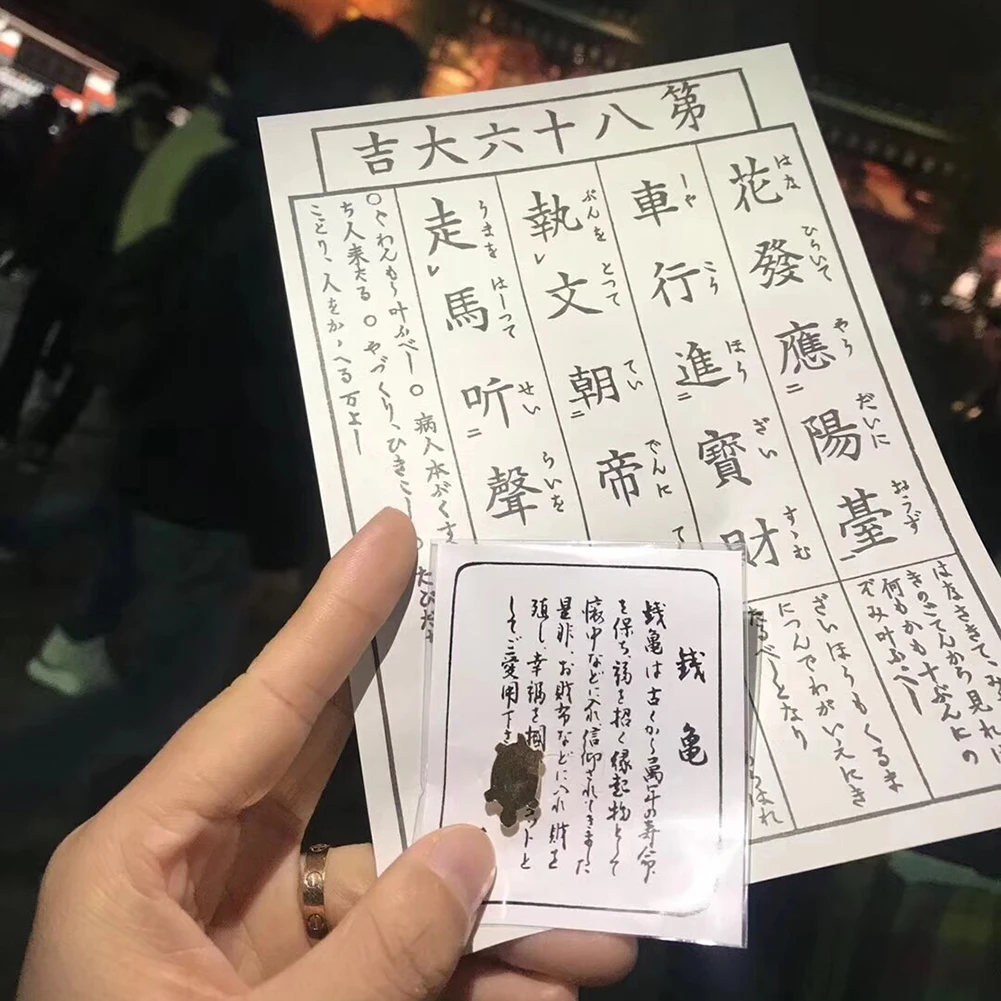 第八十六大吉
花發應陽臺
はな ひらいて やう だいに おうず
車行進寶財
しや こう ほう ざい すゝむ
執文朝帝
ぶんを とつて てい でんに
走馬听聲
うまを はしつて せい らいを
はなさきて、み
きのごてんから見れば
何もかも十ぶんにの
ぞみ叶ふべし
ざいほうもくるま
につんでわがいえにき
たるべしとなり
○ぐわんもう叶ふべし ○病人本ぶくす
ち人来たる ○やづくり、ひきこし
ことり、人をかゝへる万よし
銭亀
銭亀は古くから萬年の寿命
を保ち、福を招く縁起物として
懐中などに入れ信仰されてきました
是非、お財布などに入れ財を
殖し、幸福を掴 ットと
してご愛用下さ